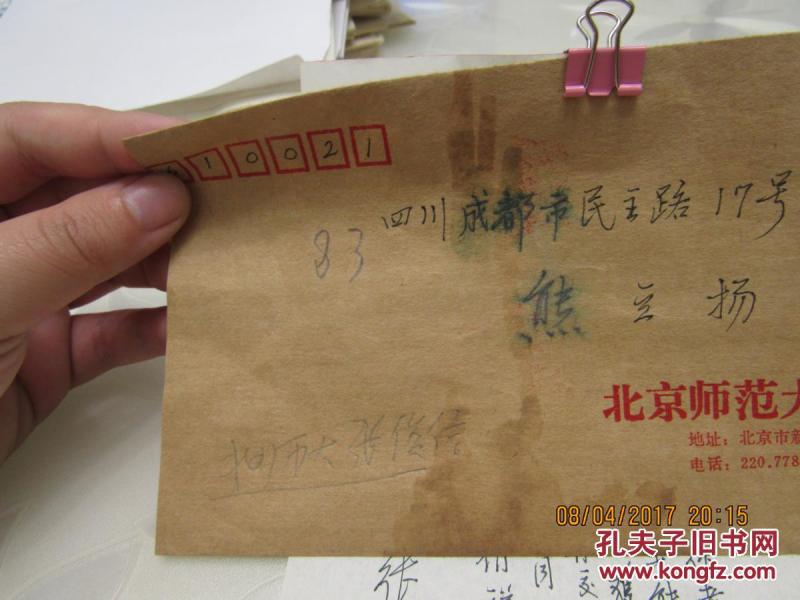 610021
四川成都市民主路17号
83
熊立扬
北京师范大
地址：北京市新
电话：220.778
北师大张俊信
08/04/2017 20:15
孔夫子旧书网
www.kongfz.com
张